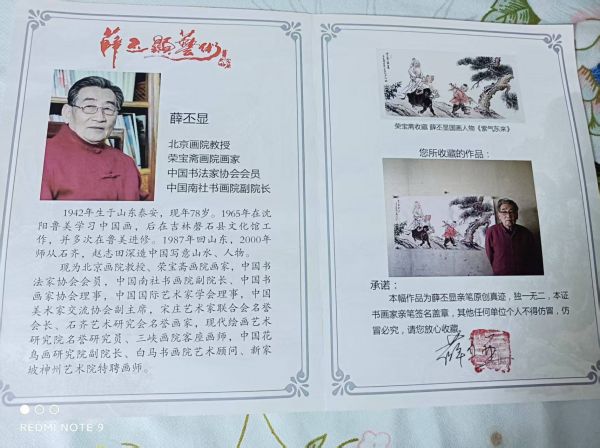 薛丕显艺术
薛丕显
北京画院教授
荣宝斋画院画家
中国书法家协会会员
中国南社书画院副院长
1942年生于山东泰安，现年78岁。1965年在沈
阳鲁美学习中国画，后在吉林磐石县文化馆工
作，并多次在鲁美进修。1987年回山东，2000年
师从石齐，赵志田深造中国写意山水、人物。
现为北京画院教授、荣宝斋画院画家，中国书
法家协会会员，中国南社书画院副院长、中国书
画家协会理事，中国国际艺术家学会理事，中国
美术家交流协会副主席，宋庄艺术家联合会名誉
会长、石齐艺术研究会名誉画家，现代绘画艺术
研究院名誉研究员、三峡画院客座画师，中国花
鸟画研究院副院长、白马书画院艺术顾问、新家
坡神州艺术院特聘画师。
荣宝斋收藏 薛丕显国画人物《紫气东来》
您所收藏的作品：
承诺：
本幅作品为薛丕显亲笔原创真迹，独一无二，本证
书画家亲笔签名盖章，其他任何单位个人不得仿冒，仿
冒必究，请您放心收藏。
薛丕显
REDMI NOTE 9